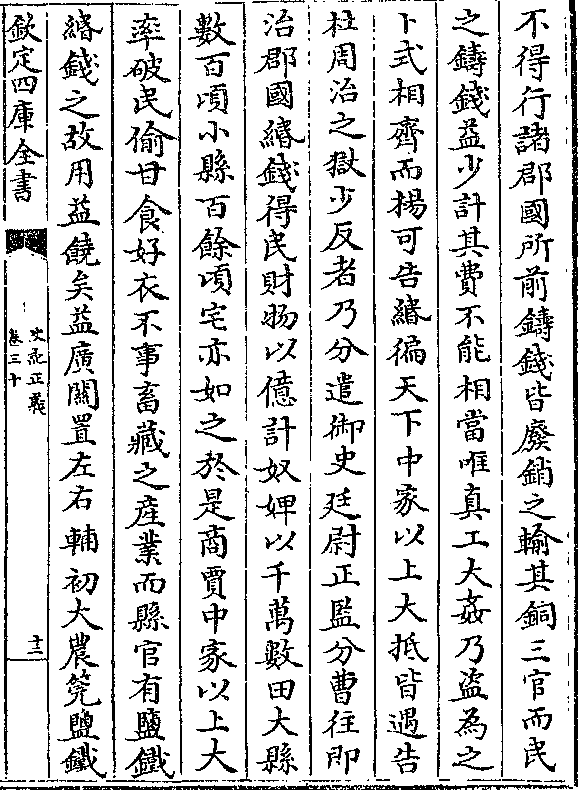 不得行諸郡國所前鑄錢皆廢銷之輸其銅三官而民
之鑄錢益少計其費不能相當唯真工大姦乃盜為之
卜式相齊而楊可告緡徧天下中家以上大抵皆遇告
杜周治之獄少反者乃分遣御史廷尉正監分曹往即
治郡國緡錢得民財物以億計奴婢以千萬數田大縣
數百頃小縣百餘頃宅亦如之於是商賈中家以上大
率破民偷甘食好衣不事畜藏之產業而縣官有鹽鐵
緡錢之故用益饒矣益廣關置左右輔初大農筦鹽鐵
欽定四庫全書
史記正義
卷三十
十三